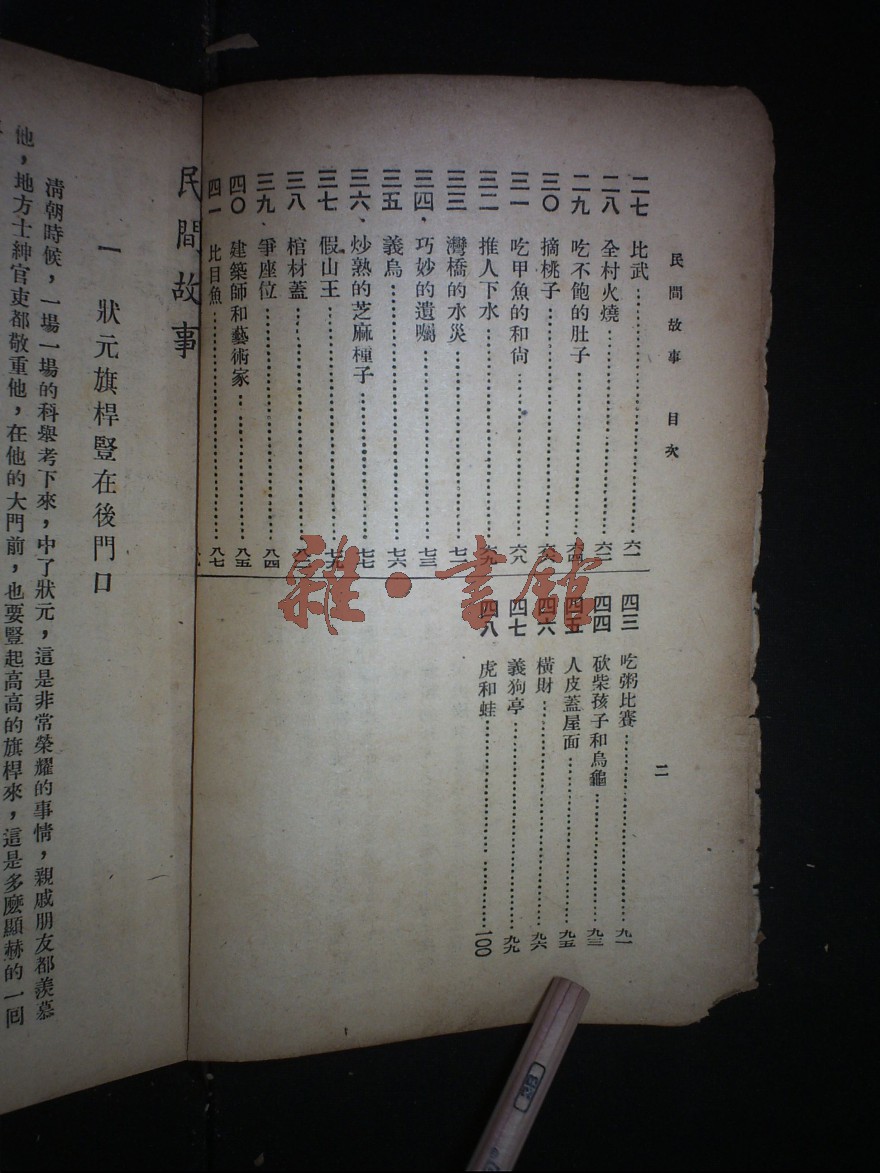 民間故事 目次
二
二七 比武……六一
二八 全村火燒……六二
二九 吃不飽的肚子……六四
三〇 摘桃子……六六
三一 吃甲魚的和尙……六八
三二 推人下水……六九
三三 灣橋的水災
三四、巧妙的遺囑……七三
三五 義烏……七六
三六、炒熟的芝麻種子……七七
三七 假山王……七九
三八 棺材蓋
三九、爭座位……八四
四〇 建築師和藝術家……八五
四一 比目魚……八七
四三 吃粥比賽……九一
四四 砍柴孩子和烏龜……九三
四五 人皮蓋屋面……九五
四六 橫財……九六
四七 義狗亭……九九
四八 虎和蛙……一〇〇
民間故事
一 狀元旗桿豎在後門口
淸朝時候，一場一場的科舉考下來，中了狀元，這是非常榮耀的事情，親戚朋友都羨慕
他，地方士紳官吏都敬重他，在他的大門前，也要豎起高高的旗桿來，這是多麽顯赫的一回
雜·書館